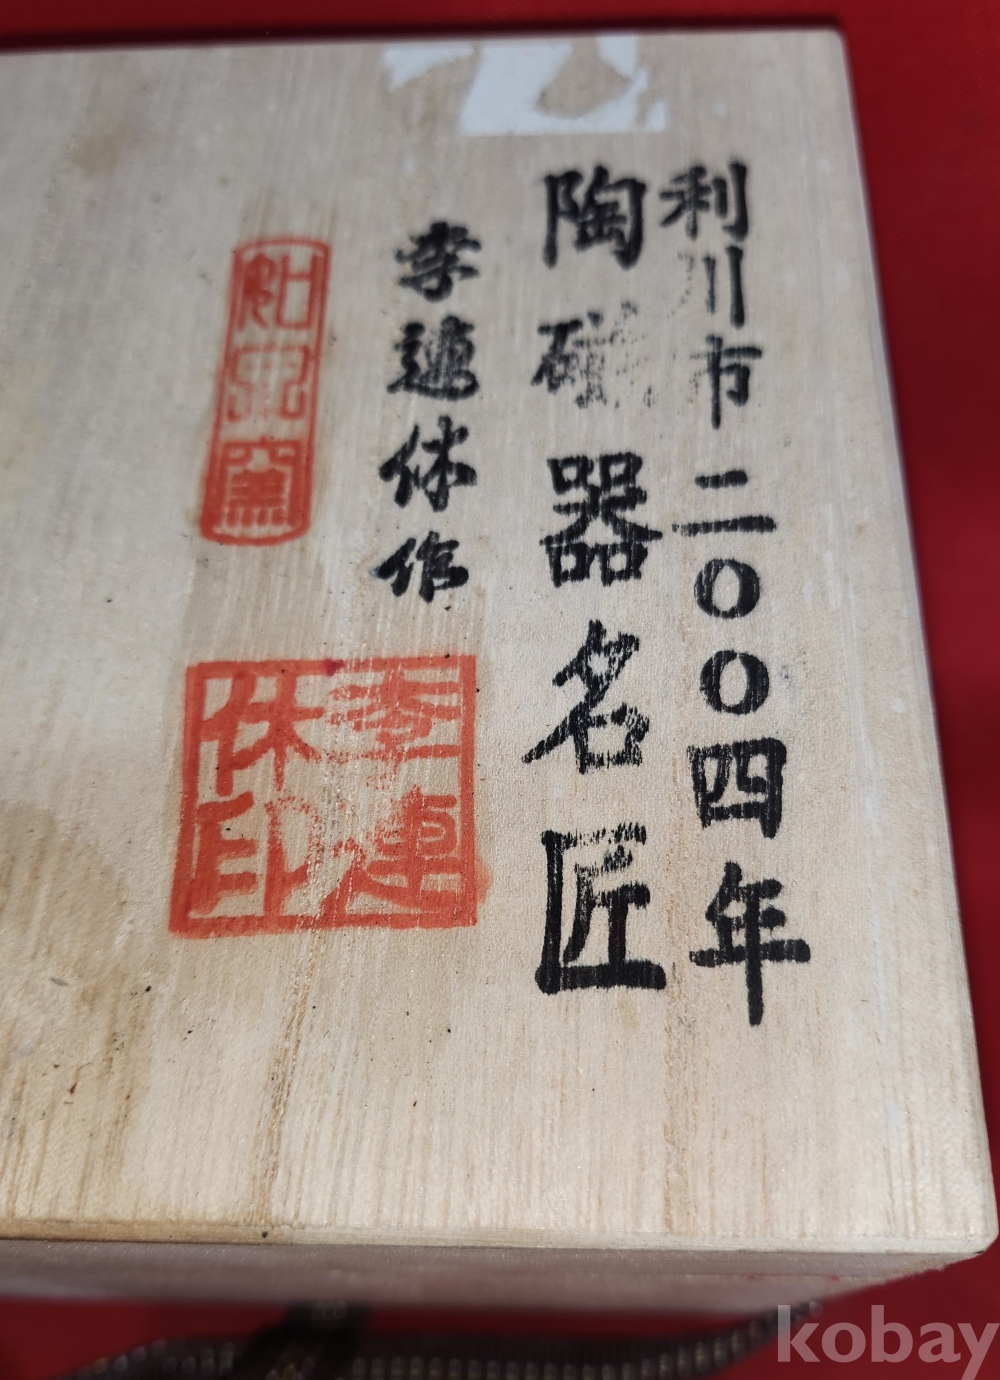 利川市 二〇〇四年
陶磁器名匠
李連休作
知足窯
李連
休印
kobay